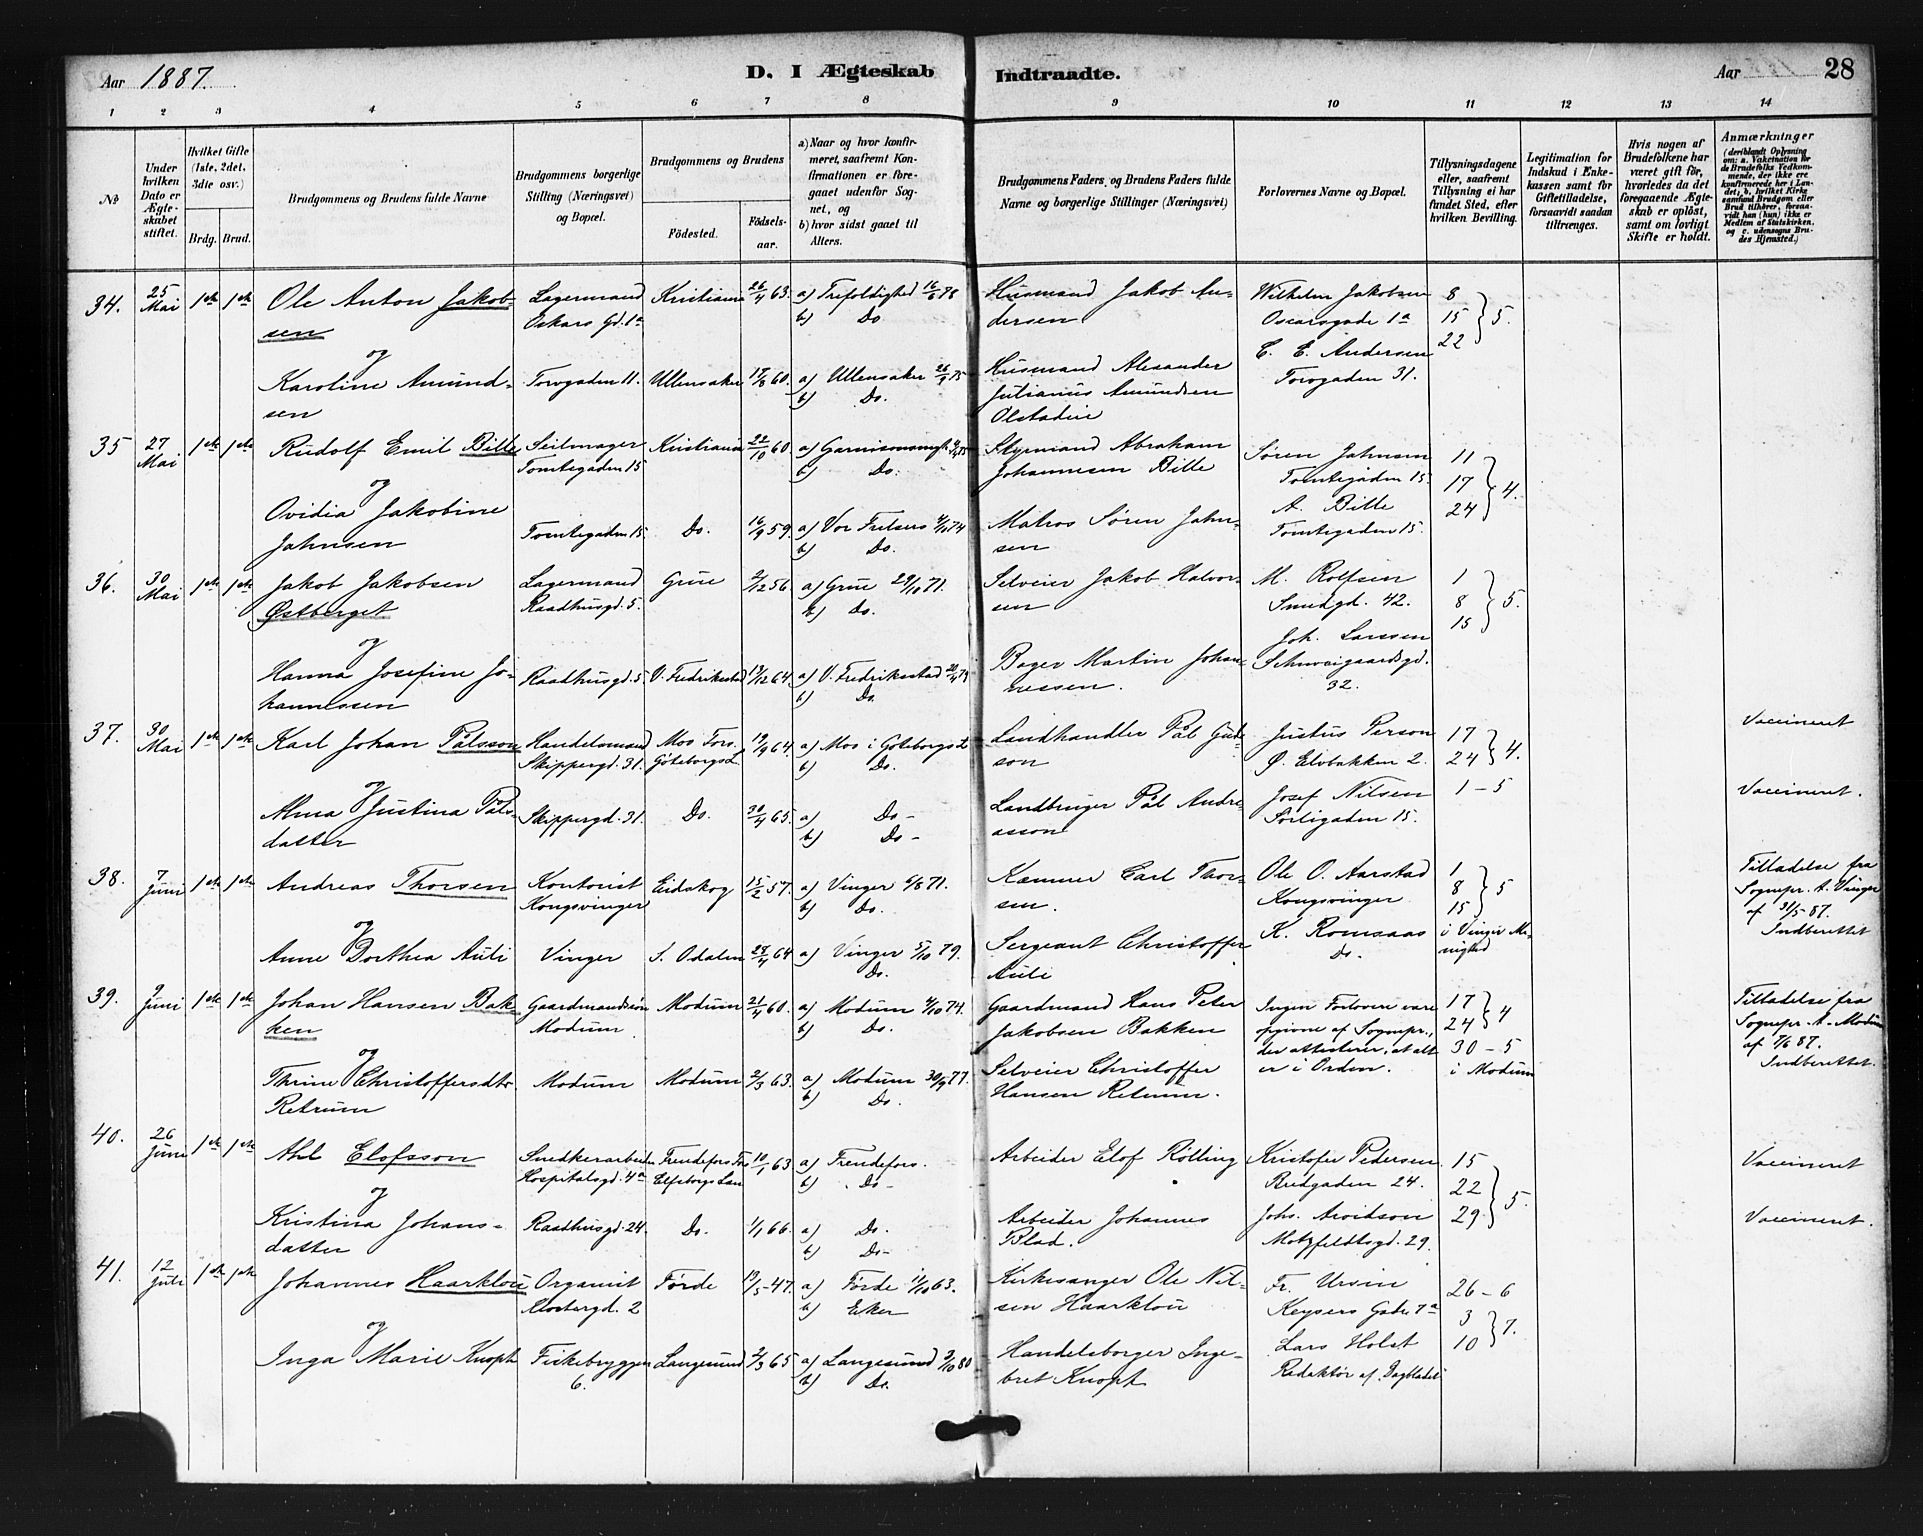 Aar 1887.
D. I Ægteskab Indtraadte.
Aar 28
1 2 3 4 5 6 7 8 9 10 11 12 13 14
No
Under hvilken Dato er Ægteskabet stiftet.
Hvilket Gifte (1ste, 2det, 3die osv.)
Brdg. Brud.
Brudgommens og Brudens fulde Navne
Brudgommens borgerlige Stilling (Næringsvei) og Bopæl.
Brudgommens og Brudens
Födested.
Födselsaar.
a) Naar og hvor konfirmeret, saafremt Konfirmationen er foregaaet udenför Sognet, og
b) hvor sidst gaaet til Alters.
Brudgommens Faders og Brudens Faders fulde Navne og borgerlige Stillinger (Næringsvei)
Forlovernes Navne og Bopæl.
Tillysningsdagene eller, saafremt Tillysning ei har fundet Sted, efter hvilken Bevilling.
Legitimation for Indskud i Enkekassen samt for Giftetilladelse, forsaavidt saadan tiltrænges.
Hvis nogen af Brudefolkene har været gift för, hvorledes da det foregaaende Ægteskab er oplöst, samt om lovligt Skifte er holdt.
Anmærkninger (deriblandt Oplysning om: a. Vakcination for de Brudefolks Vedkommende, der ikke ere konfirmerede her i Landet, b. hvilket Kirkesamfund Brudgom eller Brud tilhörer, forsaavidt han (hun) ikke er Medlem af Statskirken, og c. udensogns Brudes Hjemsted.)
34. 25 Mai 1ste 1ste Ole Anton Jakobsen Lagermand Oskars Gd. 1a Kristiania 26/4 63. a) Trefoldighed 16/6 78 b) Do. Husmand Jakob Andersen Wilhelm Jakobsen Oscarsgade 1a 8 15 22 } 5.
og
Karoline Amundsen Torvgaden 11. Ullensaker 17/8 60. a) Ullensaker 26/9 75 b) Do. Husmand Alexander Julianus Amundsen C. E. Andersen Torvgaden 31.
35 27 Mai 1ste 1ste Rudolf Emil Bille Seilmager Tomtegaden 15 Kristiania 22/10 60. a) b) Do. Styrmand Abraham Johannesen Bille Sören Jahnsen Tomtegaden 15. 11 17 24 } 4.
og
Ovidia Jakobine Jahnsen Tomtegaden 15. Do. 16/9 59. a) Vor Frelsers 4/10 74 b) Do. Matros Sören Jahnsen A. Bille Tomtegaden 15.
36. 30 Mai 1ste 1ste Jakob Jakobsen Østberget Lagermand Raadhusgd. 5. Grue 2/12 56. a) Grue 29/10 71. b) Do. Selveier Jakob Halvorsen M. Rolfsen Smedgd. 42. 1 8 15 } 5.
og
Hanna Josefine Johannessen Raadhusgd. 5 V. Fredrikstad 13/12 64 a) V. Fredrikstad b) Do. Bager Martin Johannessen. Joh. Larssen Schweigaardsgd. 32.
37. 30 Mai 1ste 1ste Karl Johan Pålsson Handelsmand Skippergd. 31. Mos Fors. Göteborgs L. 19/9 64. a) Mos i Göteborgs L b) Do. Landhandler Pål Gudson Justus Person Ø. Elvebakken 2. 17 24 } 4. Vaccineret
og
Alma Justina Pålsdatter Skippergd. 31. Do. 30/4 65. a) Do- b) Do- Landbruger Pål Andreasson Josef Nilsen Sorligaden 15. 1-5 Vaccineret.
38. 7 Juni 1ste 1ste Andreas Thorsen Kontorist Kongsvinger Eidskog 15/2 57. a) Vinger 6/8 71. b) Do. Kæmner Carl Thorsen. Ole O. Aarstad Kongsvinger 1 8 15 } 5 i Vinger Menighed Tilladelse fra Sognepr. t. Vinger af 31/5 87. Indberettet
og
Anne Dorthea Auli Vinger S. Odalen 28/4 64 a) Vinger 5/10 79. Do. Sergeant Christoffer Auli K. Romsaas Do.
39. 9 Juni 1ste 1ste Johan Hansen Bakken Gaardmandssön Modum Modum 21/4 60. a) Modum 4/10 74. b) Do. Gaardmand Hans Peter Jakobsen Bakken Ingen Forlovere vare opgivne af Sognepr., der attesterer, at alt er i Orden. 17 24 } 4 30-5 i Modum Tilladelse fra Sognepr. t. Modum af 7/6 87. Indberettet.
og
Thrine Christoffersdtr Retrum Modum Modum 2/3 63. a) Modum 30/9 77. b) Do. Selveier Christoffer Hansen Retrum.
40. 26 Juni 1ste 1ste Elofsson Snedkerarbeider Hospitalsgd. 4a Frendefors Fors Elfsborgs Län 10/1 63 a) Frendefors. b) Do- Arbeider Elof Rölling Kristofer Pedersen Bredgaden 24. 15 22 29 } 5. Vaccineret
og
Kristina Johansdatter Raadhusgd. 24 Do. 1/1 66. a) Do. b) Do- Arbeider Johannes Blad. Johs. Arvidson Motzfeldtsgd. 29. Vaccineret.
41. 12 Juli 1ste 1ste Johannes Haarklou Organist Clostergd. 2 Förde 13/5-47. a) Förde 11/10 63. b) Eker Kirkesanger Ole Nilsen Haarklou Fr. Ursin Keysers Gade 7a 26-6 3 10 } 7.
og
Inga Marie Knoph Fiskebryggen 6. Langesund 2/3 65 a) Langesund 3/10 80 b) Do. Handelsborger Ingebret Knoph Lars Holst Redaktör af Dagbladet